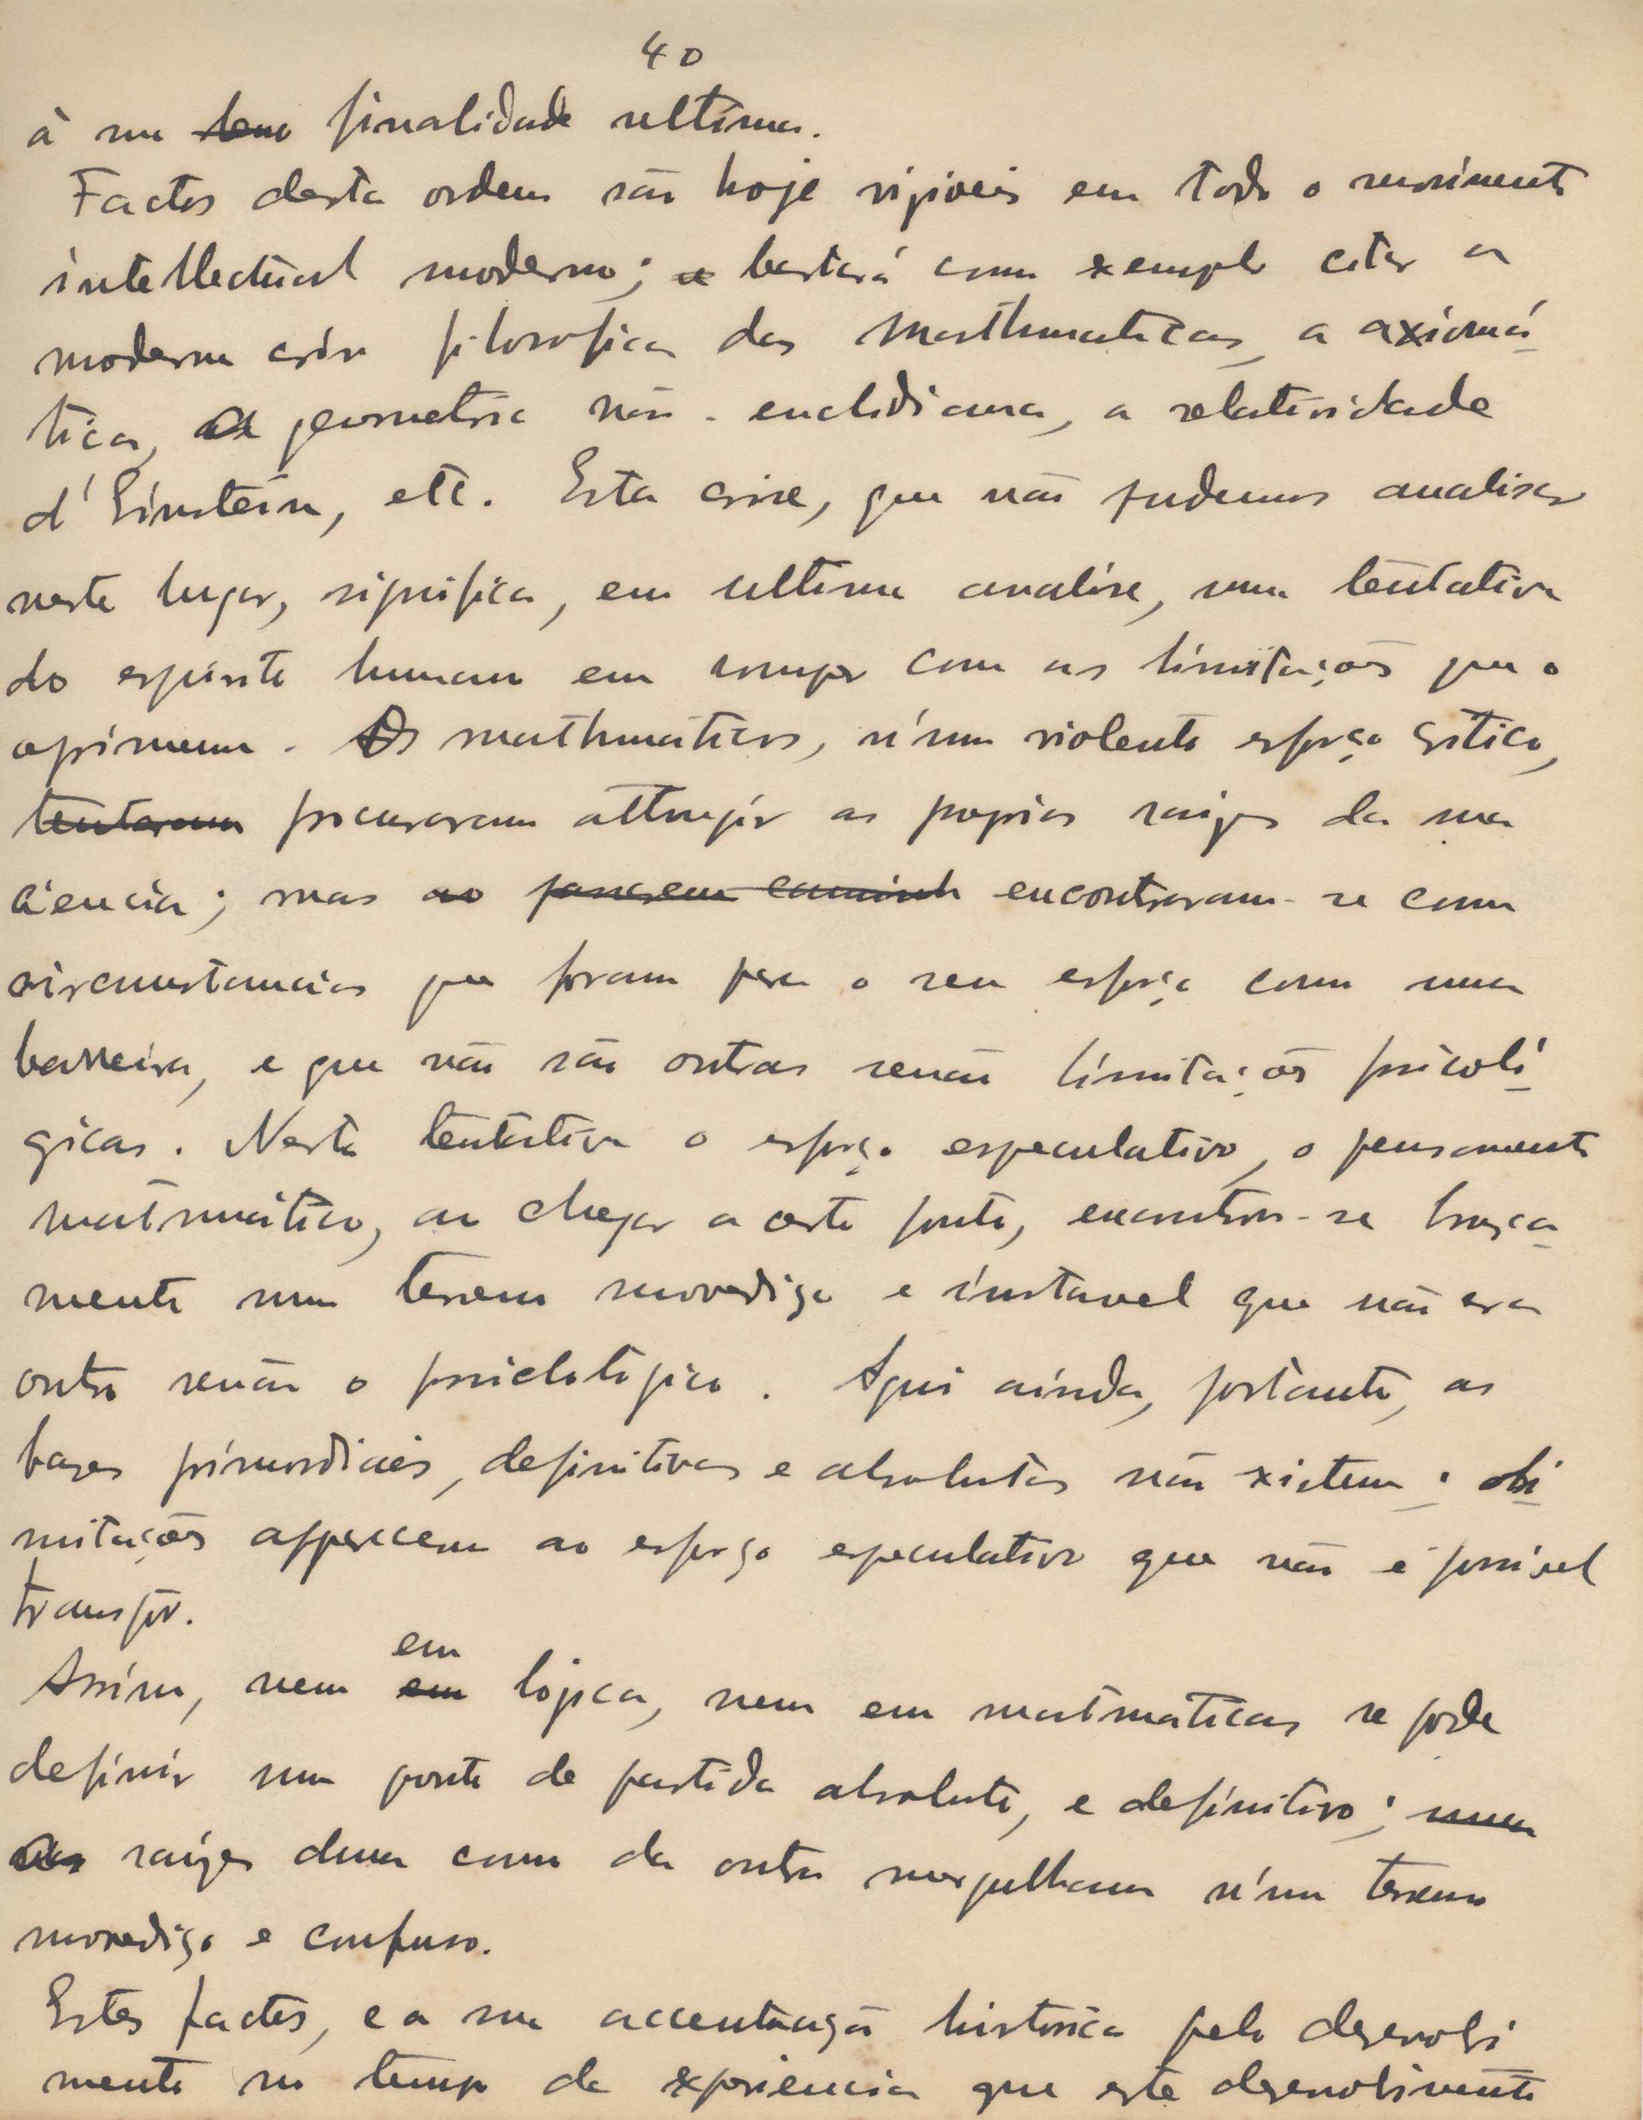 40
à sua bem finalidade ultima.
Factos desta ordem são hoje visiveis em todo o movimento
intellectual moderno; e bastará como exemplo citar a
moderna crise filosofica das mathematicas, a axiomá
tica, a geometria não-euclidiana, a relatividade
d'Einstein, etc. Esta crise, que não podemos analisar
neste lugar, significa, em ultima analise, uma tentativa
do espirito humano em romper com as limitações que o
oprimem. Os mathematicos, n'um violento esforço critico,
tentaram procuraram attingir as proprias raizes da sua
ciencia; mas ao encontraram-se com
circumstancias que foram para o seu esforço como uma
barreira, e que não são outras senão limitações psicoló
gicas. Nesta tentativa o esforço especulativo, o pensamento
matematico, ao chegar a certo ponto, encontrou-se brusca
mente num terreno movediço e instavel que não era
outro senão o psicologico. Aqui ainda, portanto, as
bases primordiaes, definitivas e absolutas não existem; li
mitações apparecem ao esforço especulativo que não é possivel
transpôr.
em
Assim, nem em lógica, nem em matematicas se pode
definir um ponto de partida absoluto, e definitivo; uma
as raizes duma como da outra mergulham n'um terreno
movediço e confuso.
Estes factos, e a sua accentuação historica pelo desenvolvi
mento no tempo da experiencia que este desenvolvimento